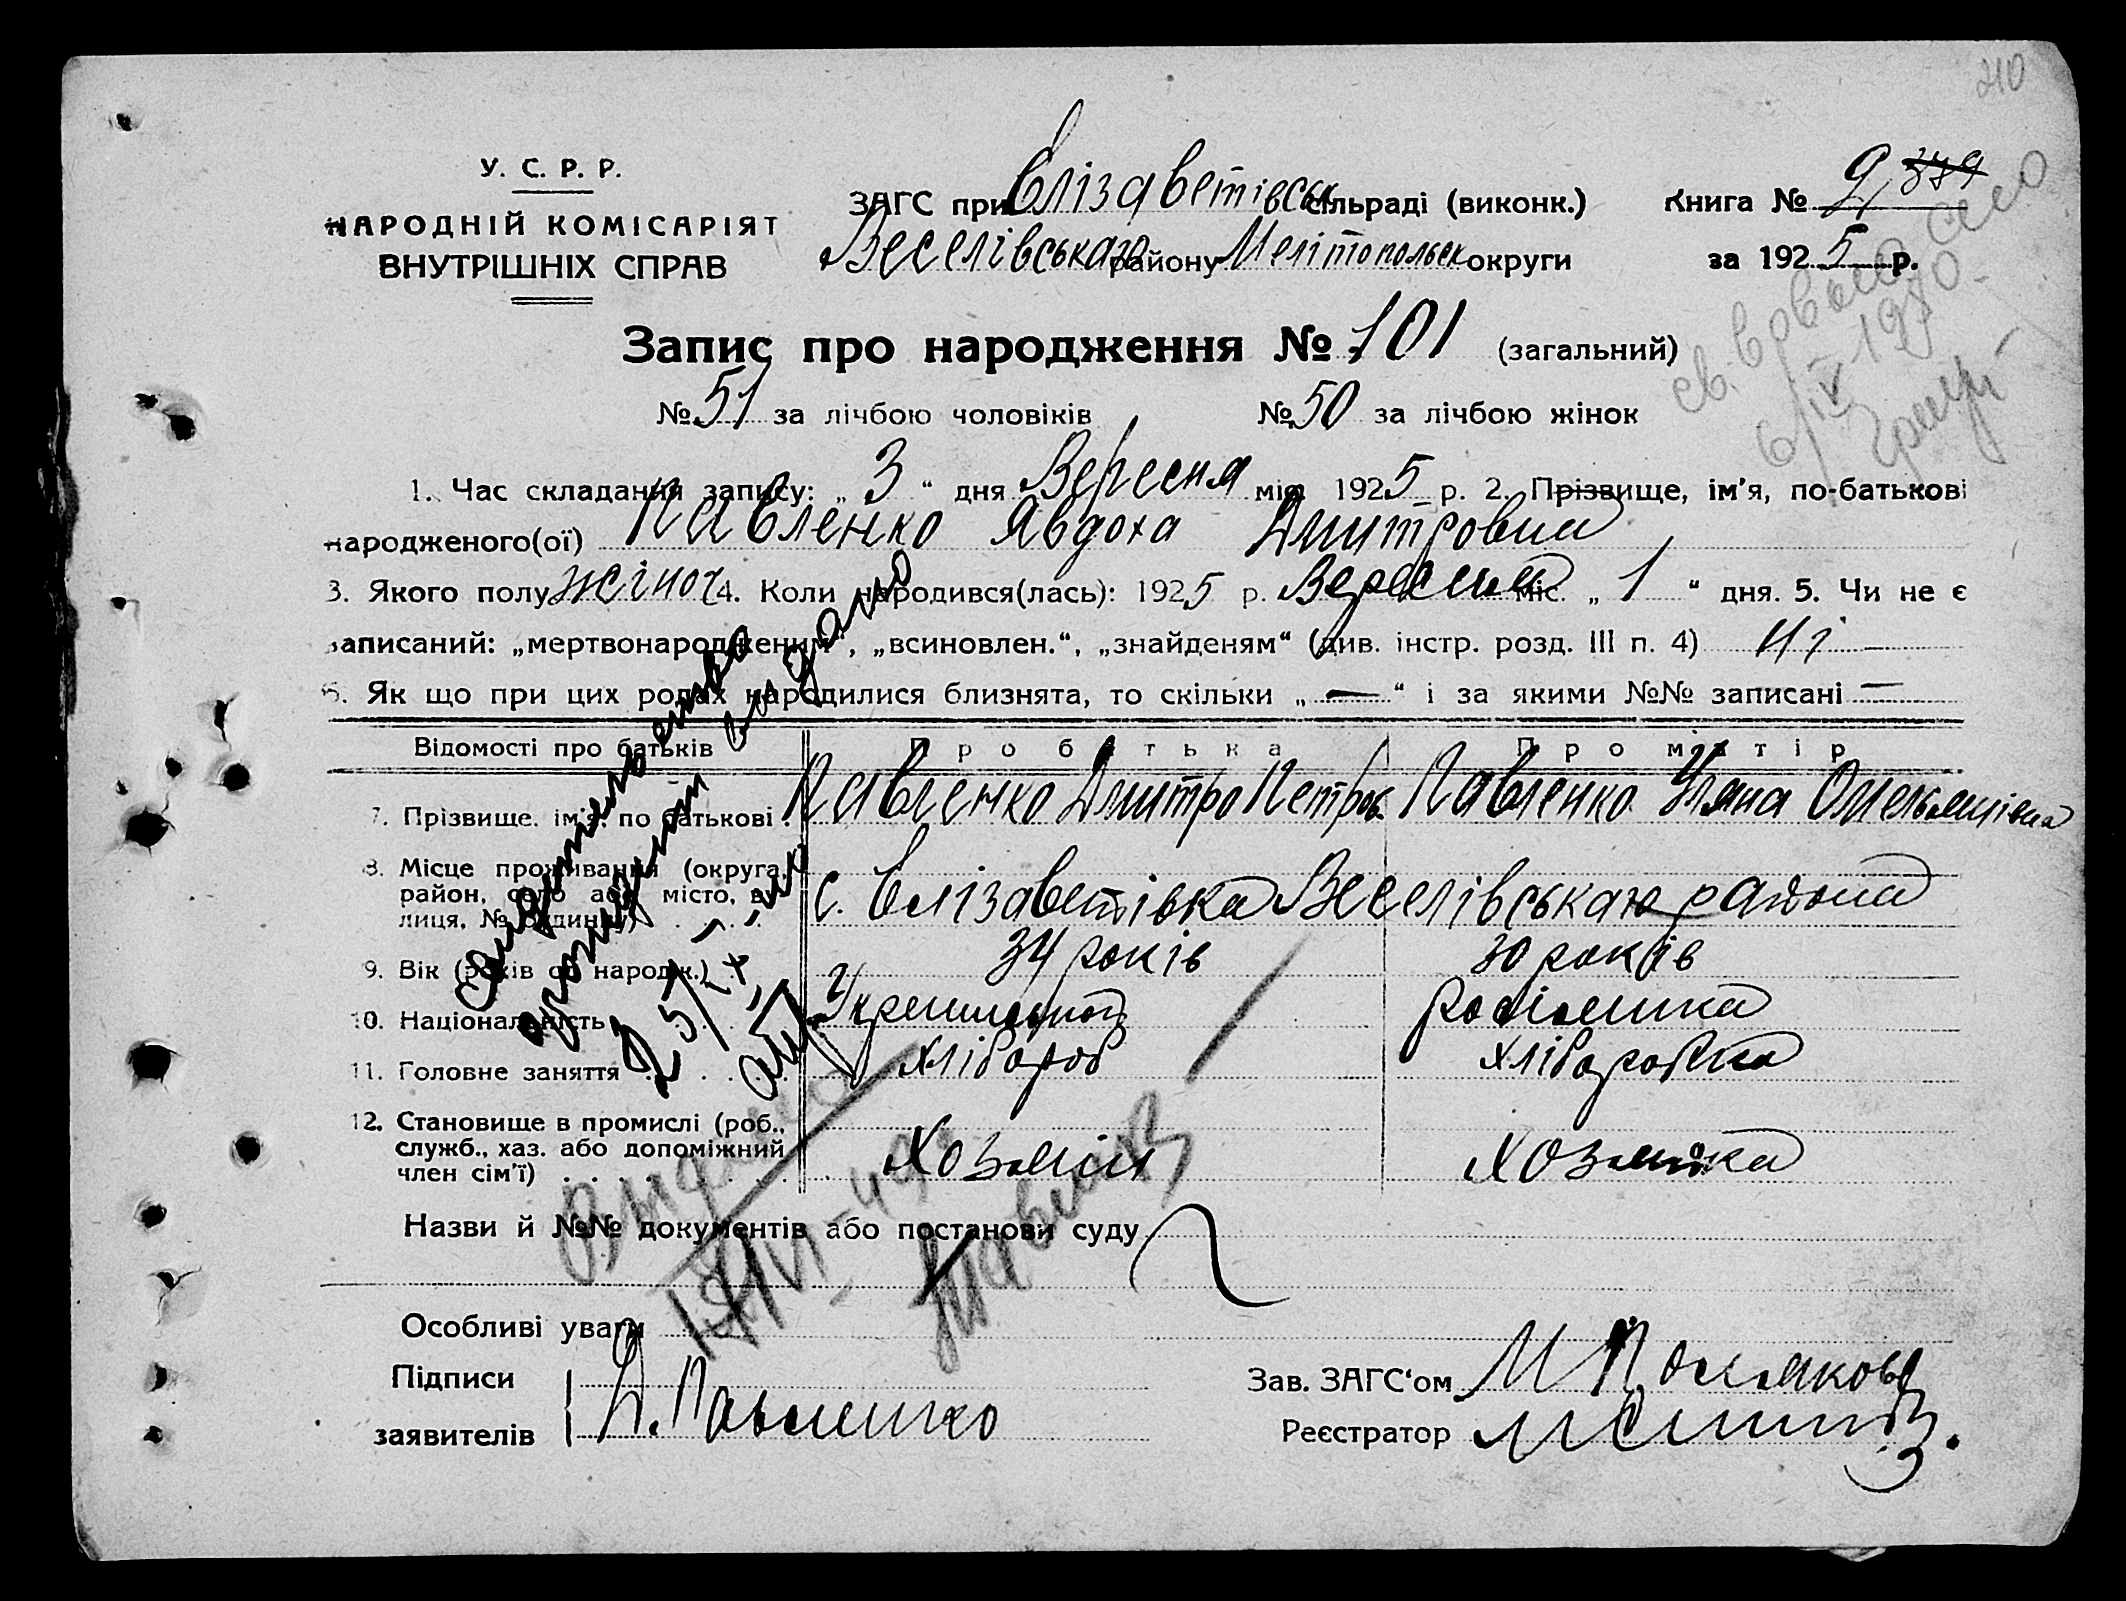 210
У. С. Р. Р.
НАРОДНІЙ КОМІСАРІЯТ
ВНУТРІШНІХ СПРАВ
ЗАГС при Єлізаветівськ сільраді (виконк.)
Веселівського району Мелітопольск округи
Книга № 2, 379
за 1925 р.
Запис про народження № 101 (загальний)
№ 51 за лічбою чоловіків № 50 за лічбою жінок
1. Час складання запису: „ 3 “ дня Вересня міс. 1925 р. 2. Прізвище, ім'я, по-батькові
народженого(ої) Павленко Явдоха Дмитровна
3. Якого полу жіноч 4. Коли народився(лась): 1925 р. Вересня міс. „ 1 “ дня. 5. Чи не є
записаний: „мертвонародженим“, „всиновлен.“, „знайденям“ (див. інстр. розд. III п. 4) Ні
6. Як що при цих родах народилися близнята, то скільки „ — “ і за якими №№ записані —
Відомості про батьків Про батька Про матір
7. Прізвище, ім'я, по батькові Павленко Дмитро Петров. Павленко Уляна Омельянівна
8. Місце проживання (округа,
район, село або місто, ву-
лиця, № будинку) с. Єлізаветівка Веселівського района
9. Вік (років од народж.) 34 років 30 років
10. Національність росіянка
11. Головне заняття хлібороб хліборобка
12. Становище в промислі (роб.,
служб., хаз. або допоміжний
член сім'ї) Хозяїн Хозяйка
Назви й №№ документів або постанови суду
Особливі уваги
Підписи
заявителів Д. Павленко
Зав. ЗАГС'ом М Поляков
Реєстратор